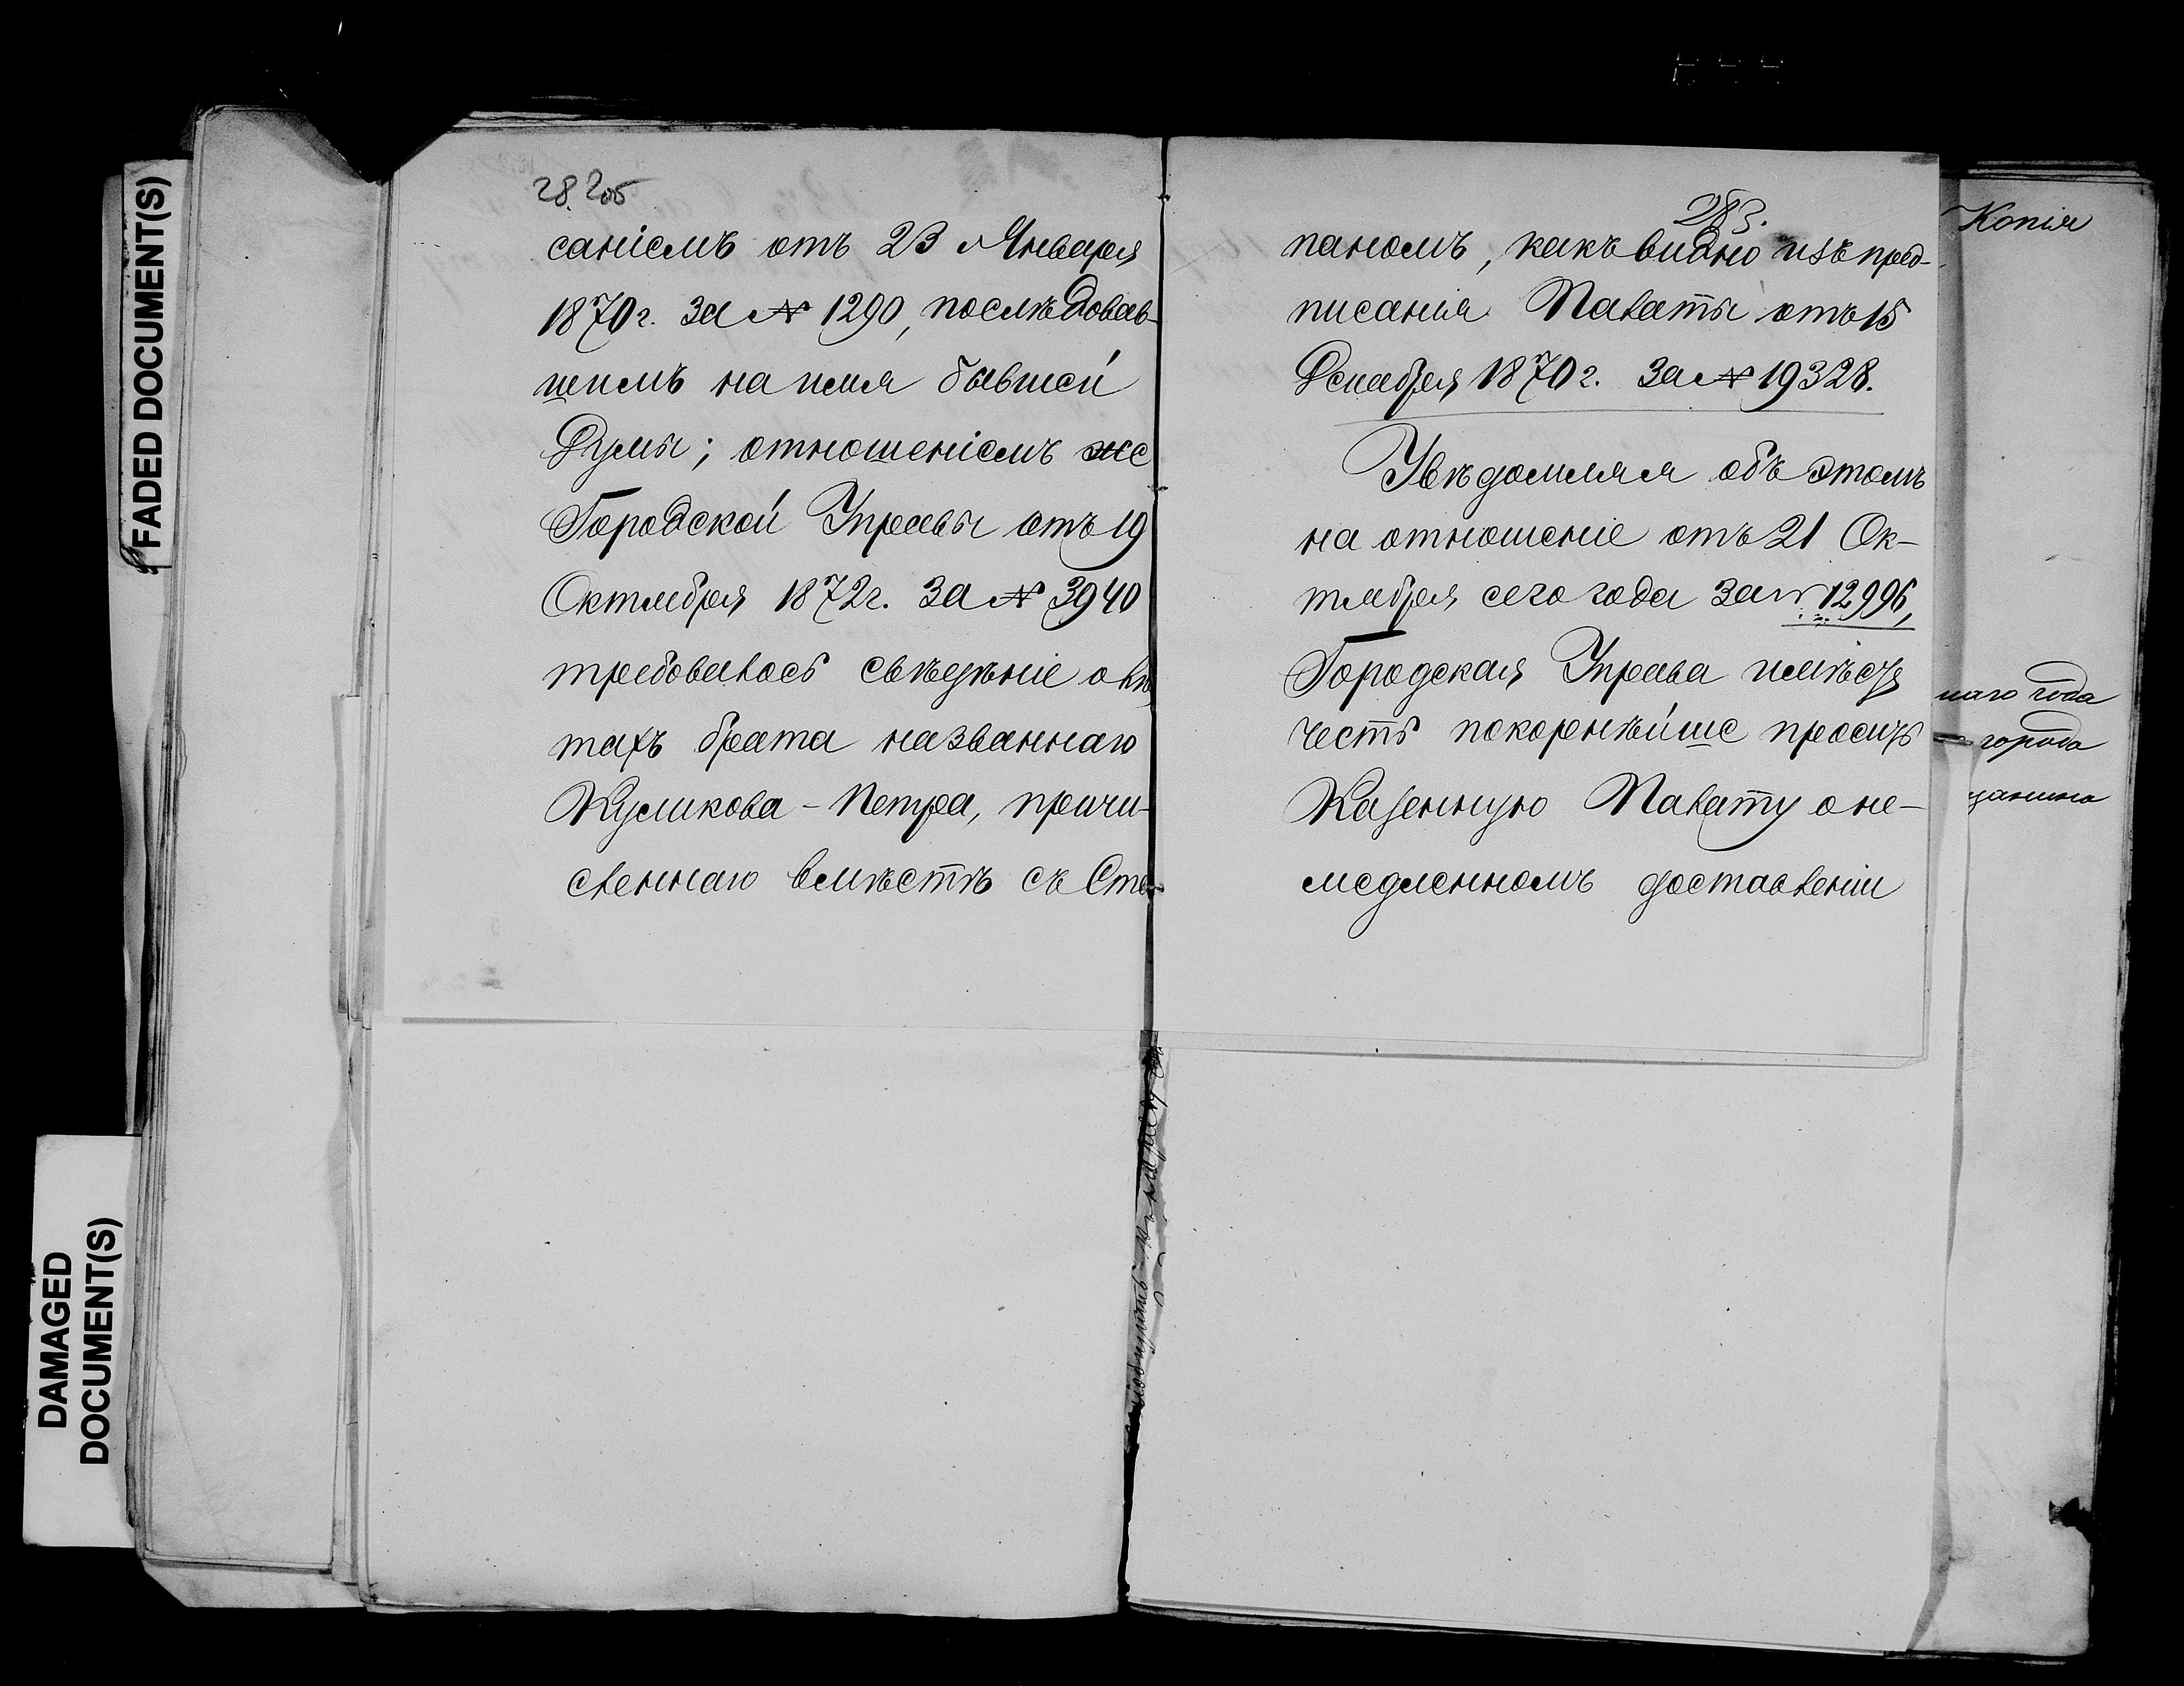 FADED DOCUMENT(S)
DAMAGED
DOCUMENT(S)
28. 2об
саніемъ отъ 23 Января
1870 г. за № 1290, послѣдовав-
шимъ на имя бывшей
Думы; отношеніемъ же
Городской Управы отъ 19
Октября 1872 г. за № 3940
требовалось свѣдѣніе о лѣ
тахъ брата названнаго
Куликова - Петра, причи-
сленнаго вмѣстѣ съ Сте-
283.
паномъ, какъ видно изъ пред-
писанія Палаты отъ 15
Декабря 1870 г. за № 19328.
Увѣдомляя объ этомъ
на отношеніе отъ 21 Ок-
тября сего года за № 12996,
Городская Управа имѣетъ
честь покорнѣйше просить
Казенную Палату о не-
медленномъ доставленіи
Копія
наго года
города
щанина